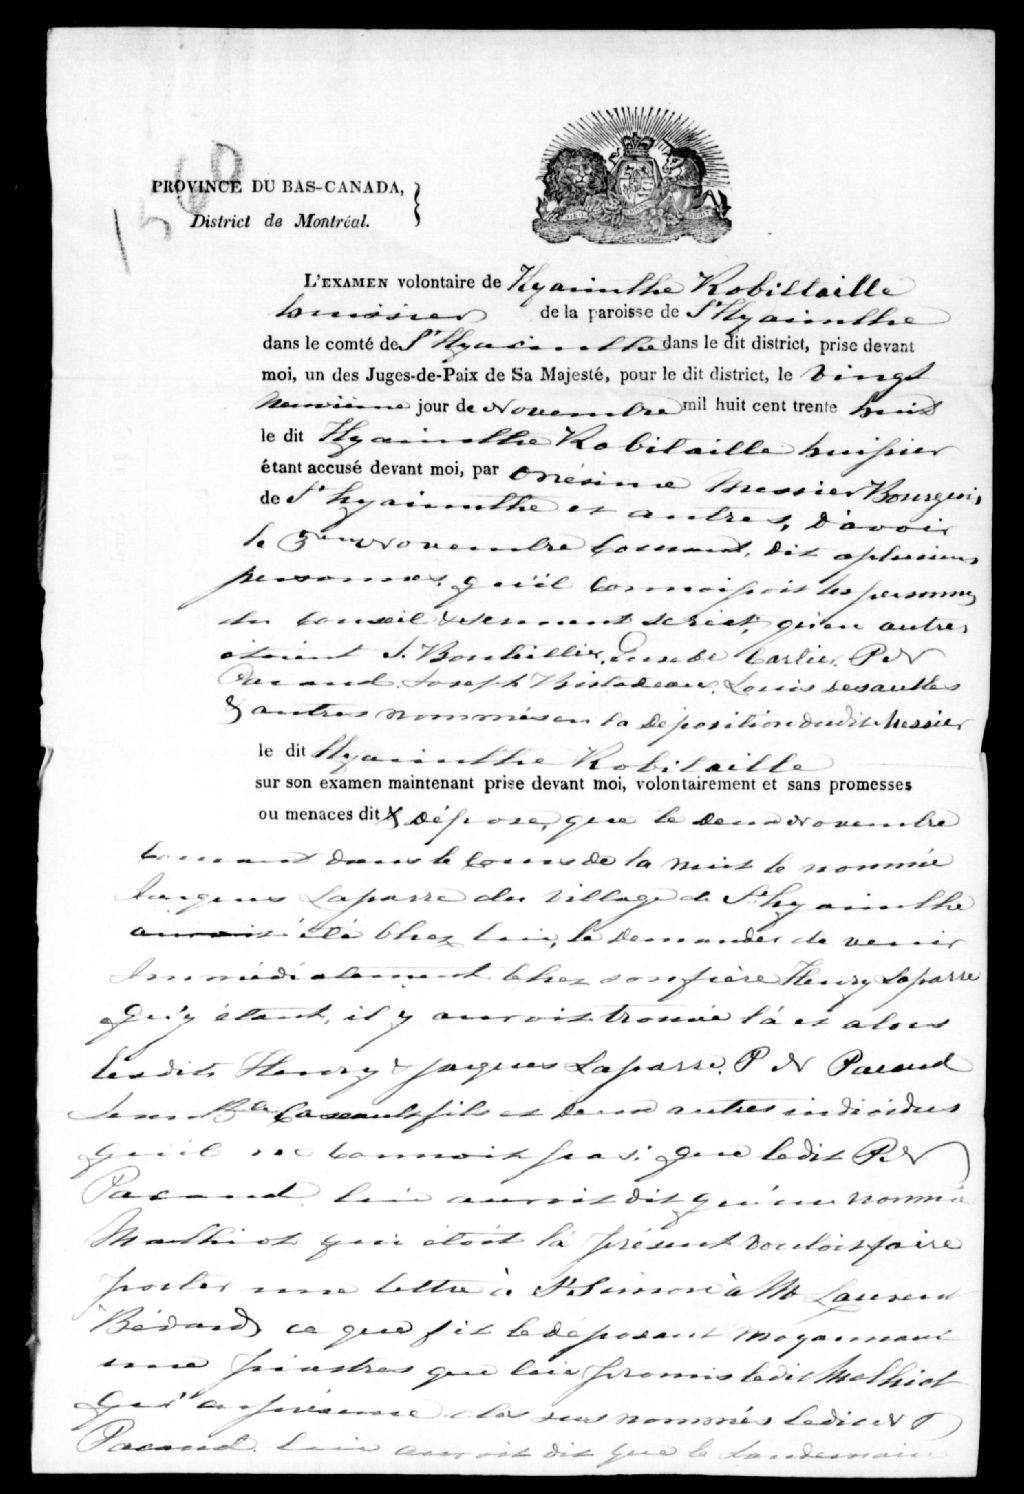 1560
PROVINCE DU BAS-CANADA,
District de Montréal.
L'EXAMEN volontaire de Hyacinthe Robittaille
huissier de la paroisse de St Hyacinthe
dans le comté de St Hyacinthe dans le dit district, prise devant
moi, un des Juges-de-Paix de Sa Majesté, pour le dit district, le vingt
neuvième jour de Novembre mil huit cent trente huit
le dit Hyacinthe Robitaille huissier
étant accusé devant moi, par Onésime Messier Bourgeois
de St hyacinthe et autres, d'avoir
le 3eme Novembre courant, dit a plusieurs
personnes. qu'il connoissoit les personnes
du conseil & serment secret, qu'en autres
étoient S. Bouthillier, Eusebe Cartier. P. N
Pacaud. Joseph Bistodeau. Louis desaulles
& autres nommés en la déposition dudit Messier
le dit Hyacinthe Robitaille
sur son examen maintenant prise devant moi, volontairement et sans promesses
ou menaces dit & dépose, que le deux Novembre
courant dans le cours de la nuit le nommé
Jacques Laparre du village de St hyacinthe
auroit été chez lui, le demander de venir
Immédiatement chez son frère Henry Laparre
Qu'y étant, il y auroit trouvé là et alors
lesdits Henry & Jacques Laparre. P N Pacaud
Jean Bte Cazeault fils et deux autres individus
qu'il ne connoit pas. Que ledit P. N
Pacaud lui auroit dit qu'un nommé
Malhiot qui étoit là présent vouloit faire
porter une lettre à St Simon à Mr Laurent
Bédard, ce que fit le déposant moyennant
une piastres que lui promis ledit Malhiot
Qu'en présence des sus nommés ledit N P
Pacaud lui auroit dit que le Landemain